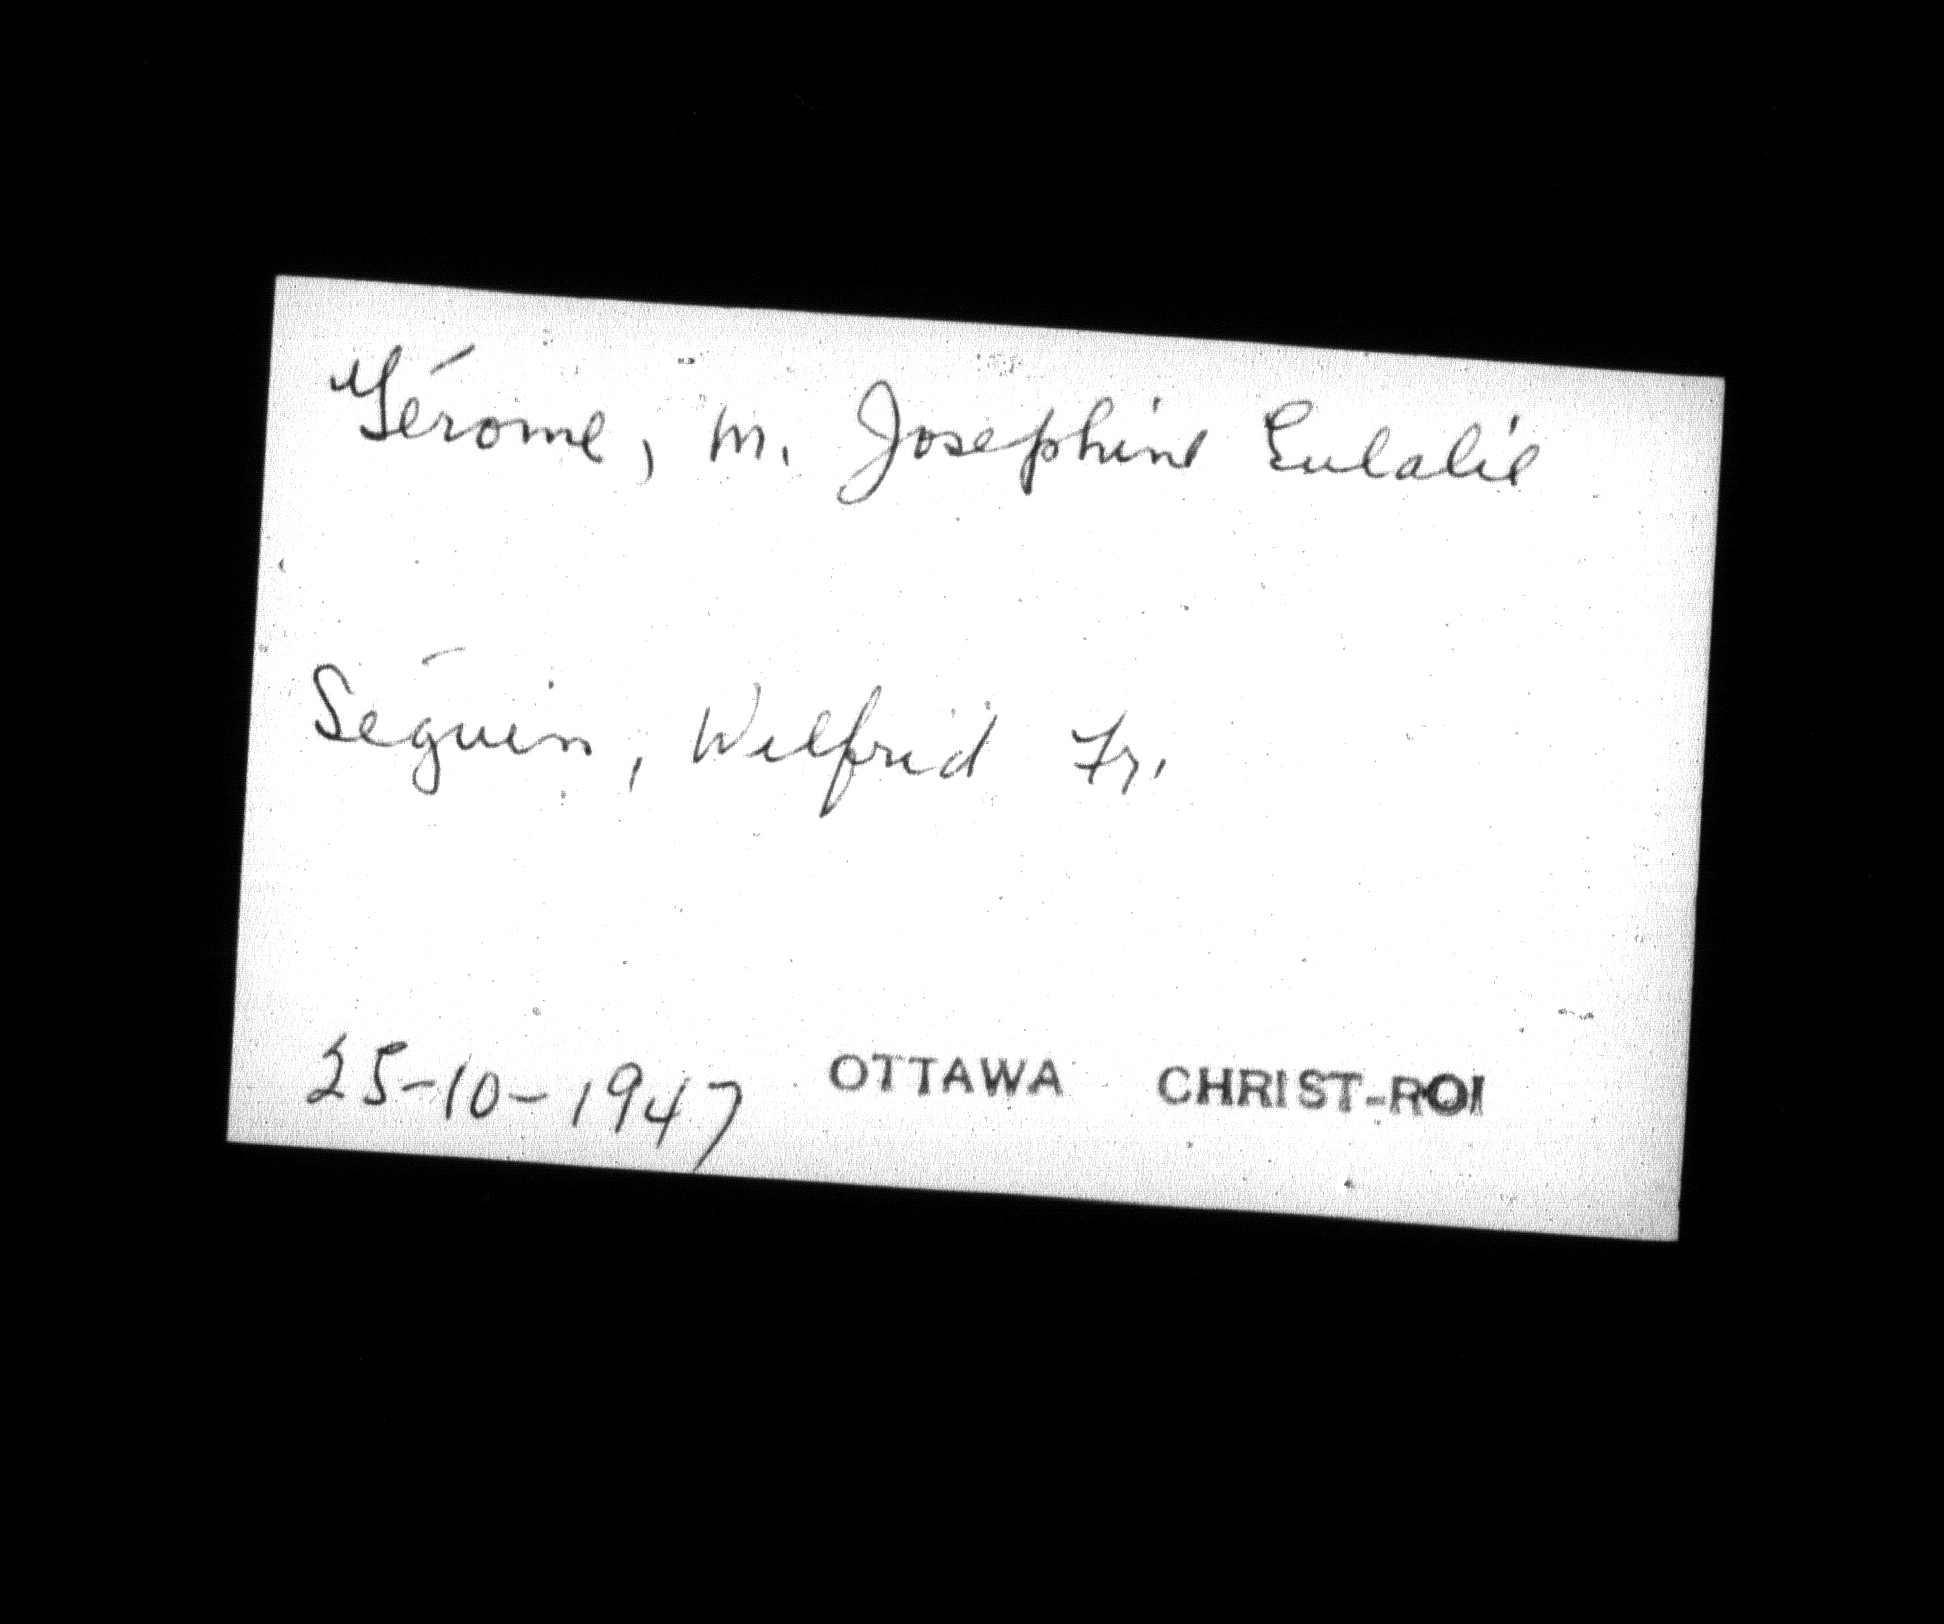 Gérome, M. Josephine Eulalie
Séguin, Wilfrid Fr.
25-10-1947 OTTAWA CHRIST-ROI